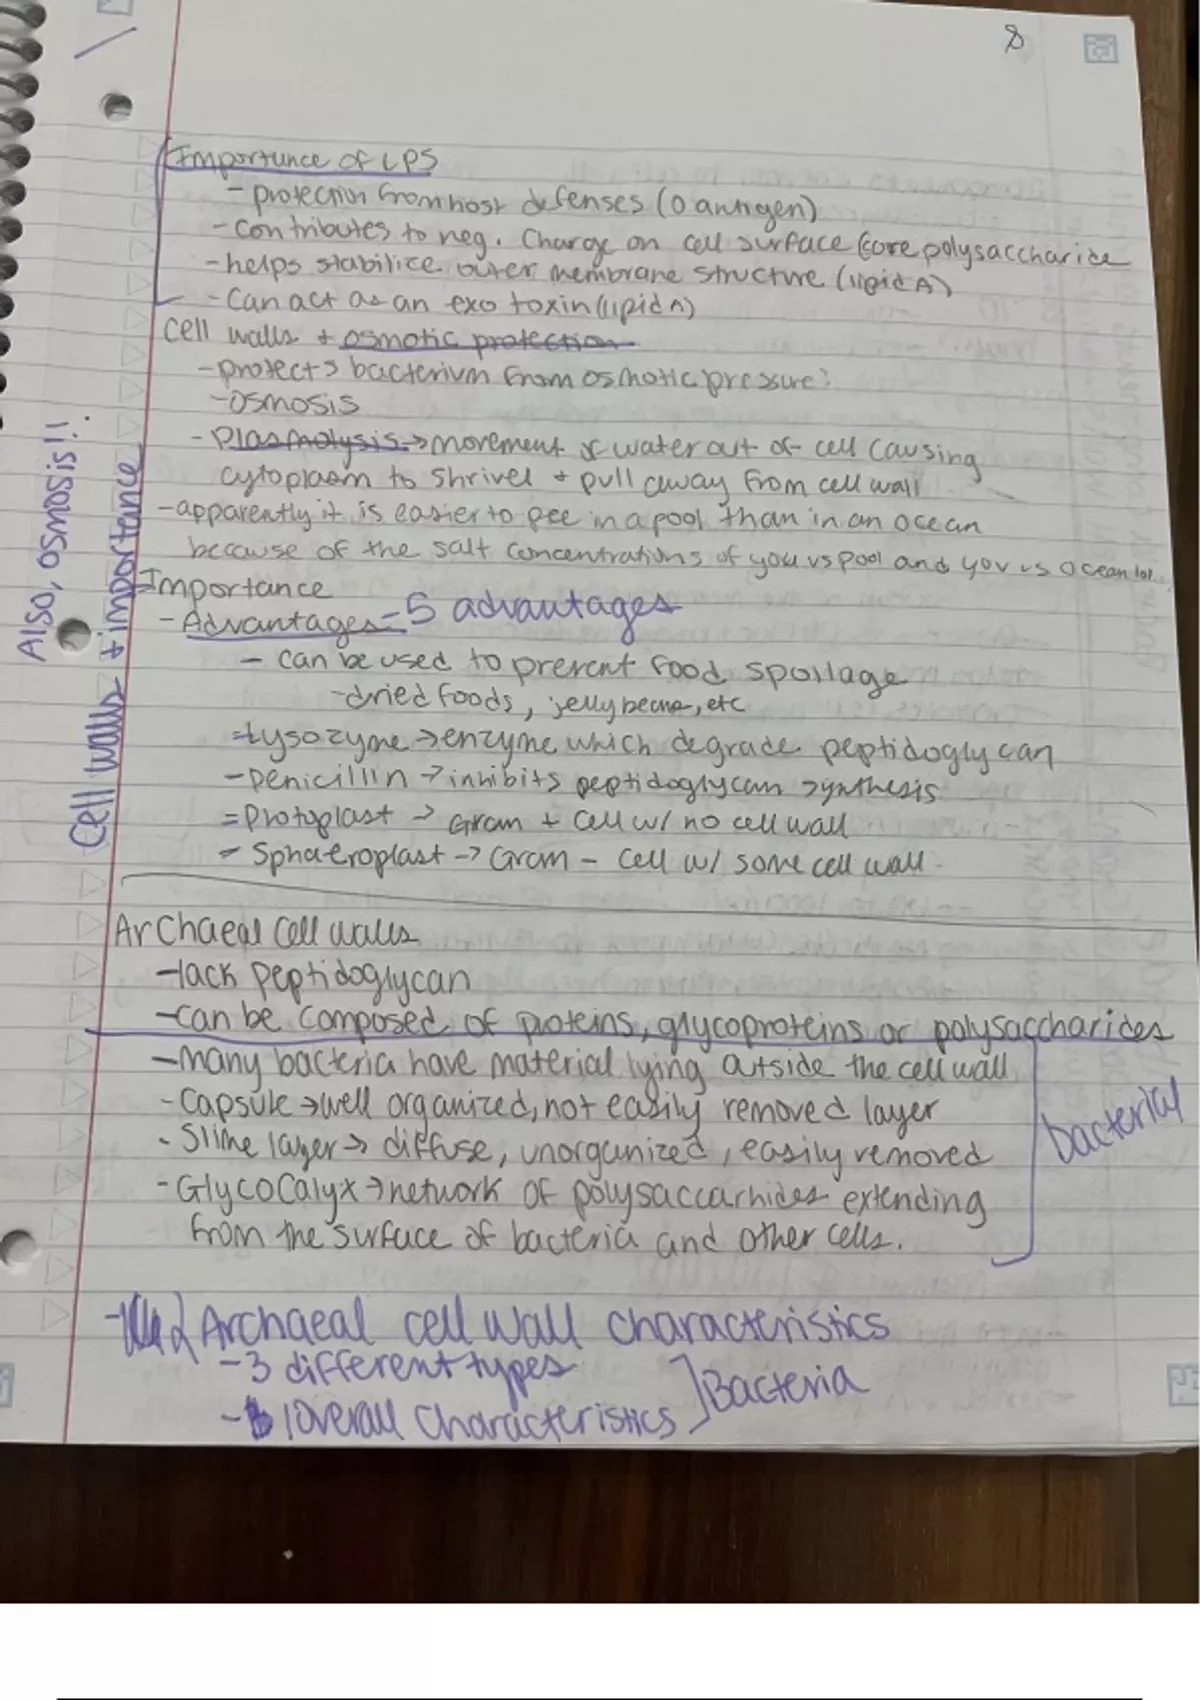 8
Importance of LPS
- protection from host defenses (O antigen)
- contributes to neg. charge on cell surface (core polysaccharide
- helps stabilize outer membrane structure (lipid A)
- Can act as an exotoxin (lipid A)
Cell walls + osmotic protection
- protects bacterium from osmotic pressure:
- osmosis
- Plasmolysis → movement of water out of cell causing
cytoplasm to shrivel + pull away from cell wall
- apparently it is easier to pee in a pool than in an ocean
because of the salt concentrations of you vs pool and you vs ocean lol
Importance
- Advantages - 5 advantages
- can be used to prevent food spoilage
- dried foods, jellybeans, etc
- Lysozyme → enzyme which degrade peptidoglycan
- penicillin → inhibits peptidoglycan synthesis
- Protoplast → Gram + cell w/ no cell wall
- Sphaeroplast → Gram - cell w/ some cell wall
Also, osmosis!!
Cell walls + importance
Archaeal Cell walls
- lack peptidoglycan
- can be composed of proteins, glycoproteins or polysaccharides
- many bacteria have material lying outside the cell wall
- Capsule → well organized, not easily removed layer
- Slime layer → diffuse, unorganized, easily removed
- Glycocalyx → network of polysaccarhides extending
from the surface of bacteria and other cells.
bacterial
2 Archaeal cell wall characteristics
- 3 different types
- 1 overall characteristics
Bacteria